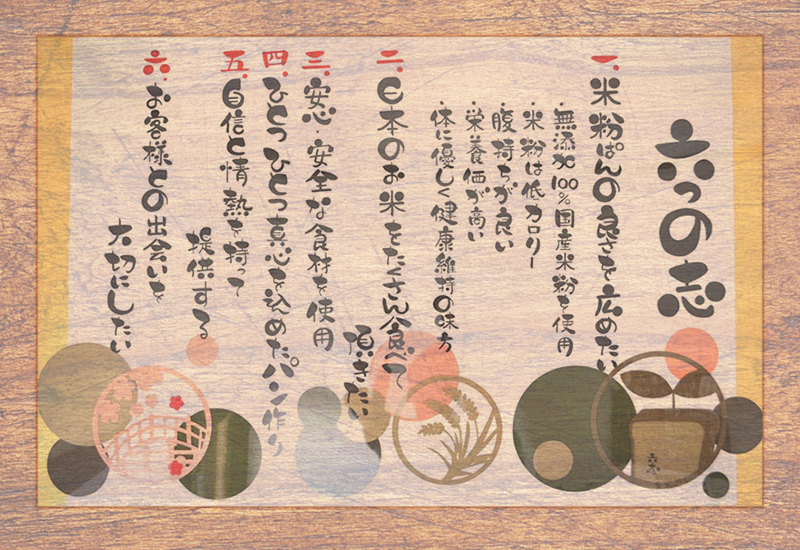 六つの志
一.米粉ぱんの良さを広めたい
・無添加100%国産米粉を使用
・米粉は低カロリー
・腹持ちが良い
・栄養価が高い
・体に優しく健康維持の味方
二.日本のお米をたくさん食べて
頂きたい
三.安心・安全な食材を使用
四.ひとつひとつ真心を込めたパン作り
五.自信と情熱を持って
提供する
六.お客様との出会いを
大切にしたい
六志